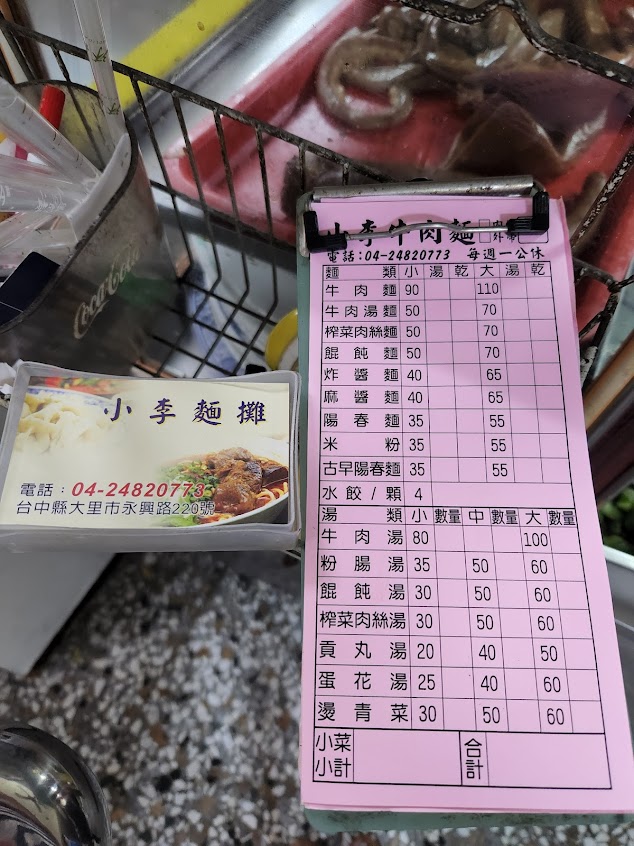 Coca-Cola
小李牛肉麵
電話:04-24820773 每週一公休
麵類 小 湯 乾 大 湯 乾
牛肉麵 90 110
牛肉湯麵 50 70
榨菜肉絲麵 50 70
餛飩麵 50 70
炸醬麵 40 65
麻醬麵 40 65
陽春麵 35 55
米粉 35 55
古早陽春麵 35 55
水餃/顆 4
湯類 小 數量 中 數量 大 數量
牛肉湯 80 100
粉腸湯 35 50 60
餛飩湯 30 50 60
榨菜肉絲湯 30 50 60
貢丸湯 20 40 50
蛋花湯 25 40 60
燙青菜 30 50 60
小菜小計 合計
小李麵攤
電話:04-24820773
台中縣大里市永興路220號